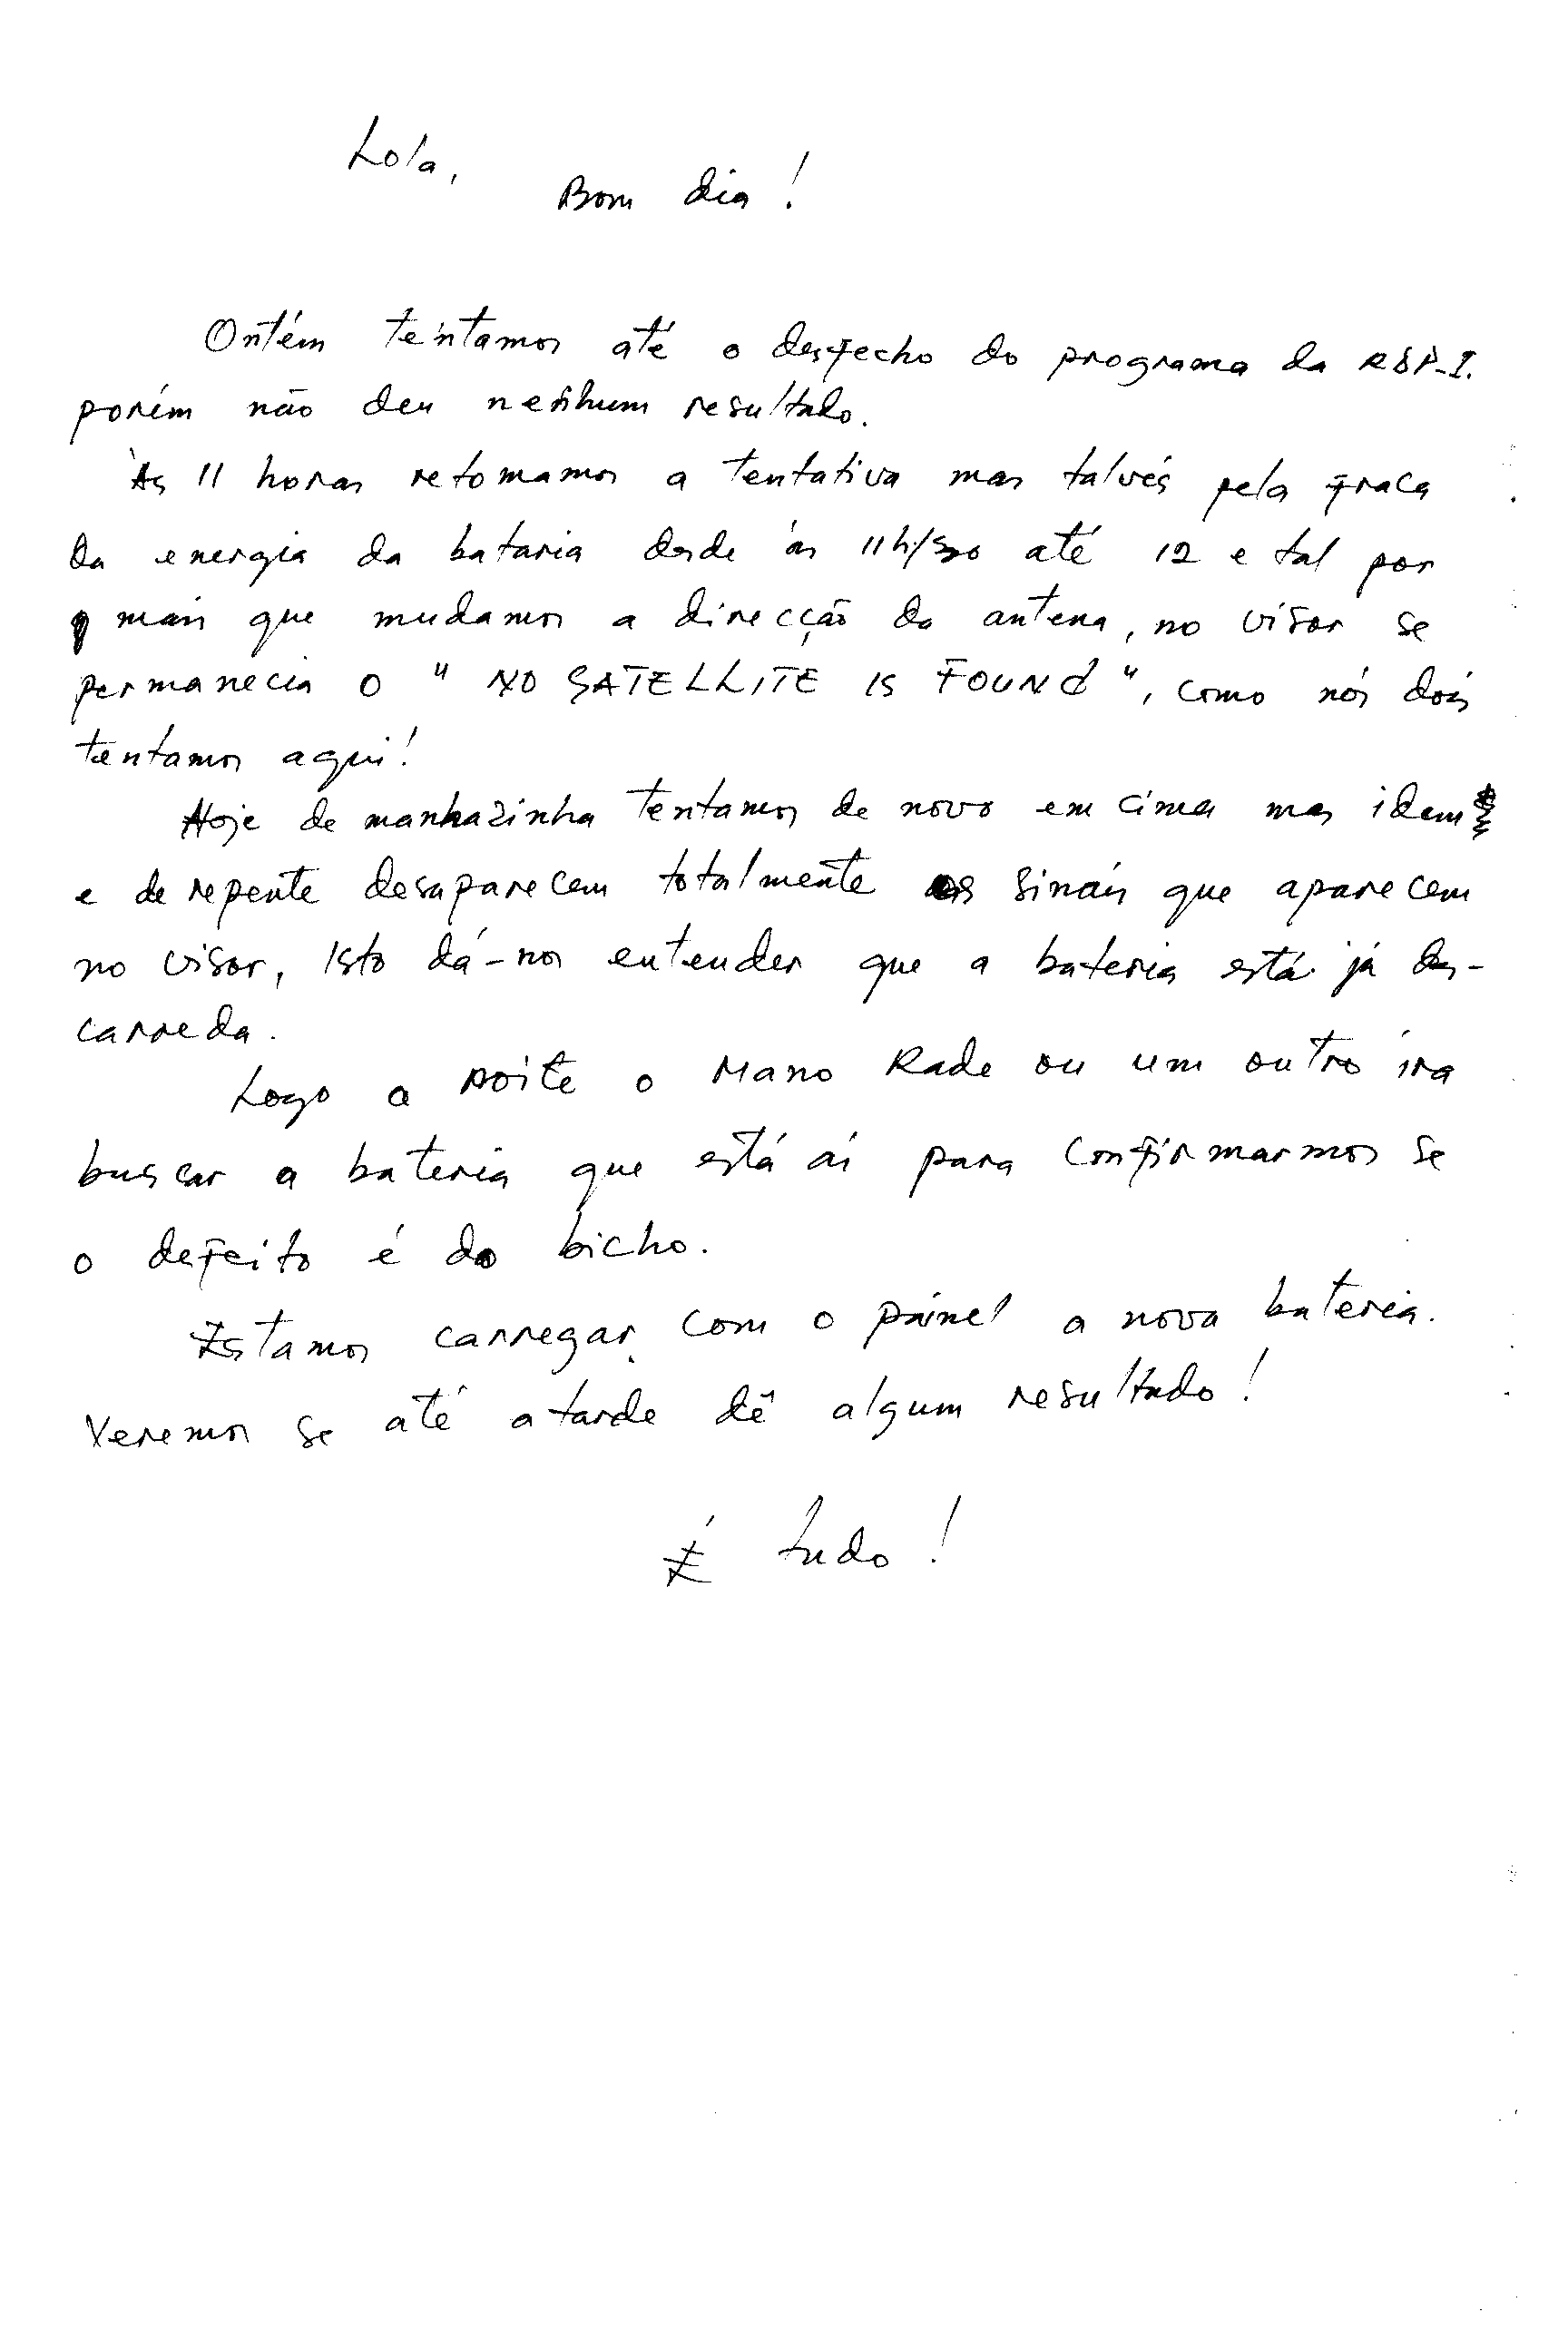 Lola,
Bom dia!
Ontém tentamos até o desfecho do programa da RDP-I.
porém não deu nenhum resultado.
Às 11 horas retomamos a tentativa mas talvés pela fraca
da energia da bataria desde às 11h/30 até 12 e tal por
mais que mudamos a direcção da antena, no visor se
permanecia o " NO SATELLITE IS FOUND", como nós dois
tentamos aqui!
Hoje de manhazinha tentamos de novo em cima mas idem
e de repente desaparecem totalmente os sinais que aparecem
no visor, Isto dá-nos entender que a bateria está já des-
carreda.
Logo a noite o Mano Rade ou um outro ira
buscar a bateria que está aí para confirmarmos se
o defeito é do bicho.
Estamos carregar com o páinel a nova bateria.
Veremos se até a tarde dê algum resultado!
É tudo!